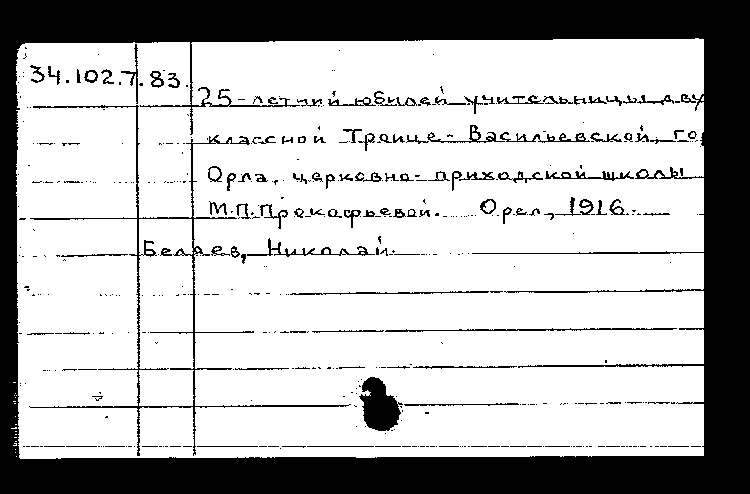 34.102.7.83.
25-летний юбилей учительницы дву
классной Троице-Васильевской, гор
Орла, церковно-приходской школы
М.П.Прокофьевой. Орел, 1916.
Беляев, Николай.